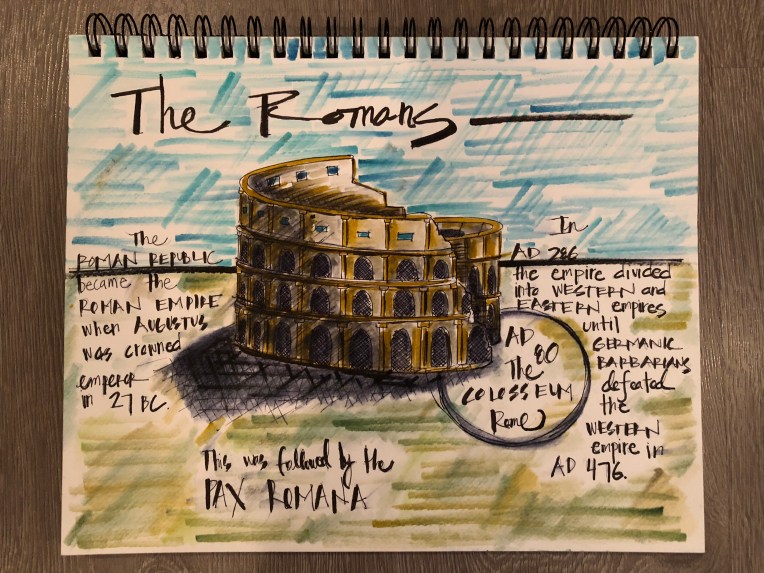 The Romans
The
ROMAN REPUBLIC
became the
ROMAN EMPIRE
when AUGUSTUS
was crowned
emperor
in 27 BC.
This was followed by the
PAX ROMANA
AD 80
The
COLOSSEUM
Rome
In
AD 286
the empire divided
into WESTERN and
EASTERN empires
until
GERMANIC
BARBARIANS
defeated
the
WESTERN
empire in
AD 476.